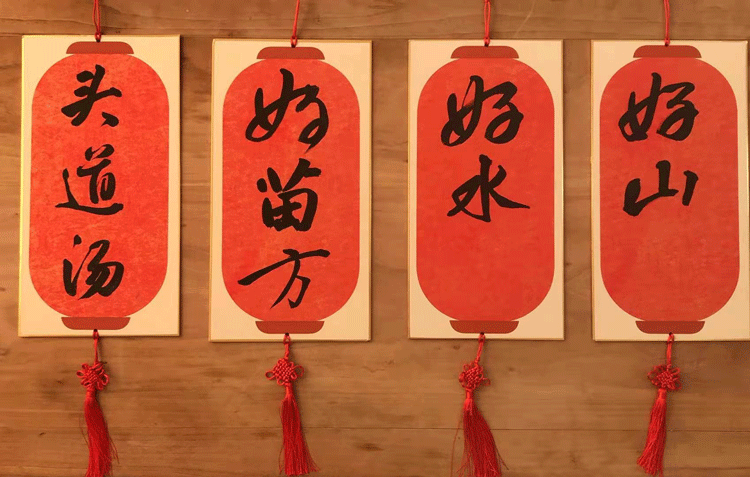 好山
好水
好苗方
头道汤